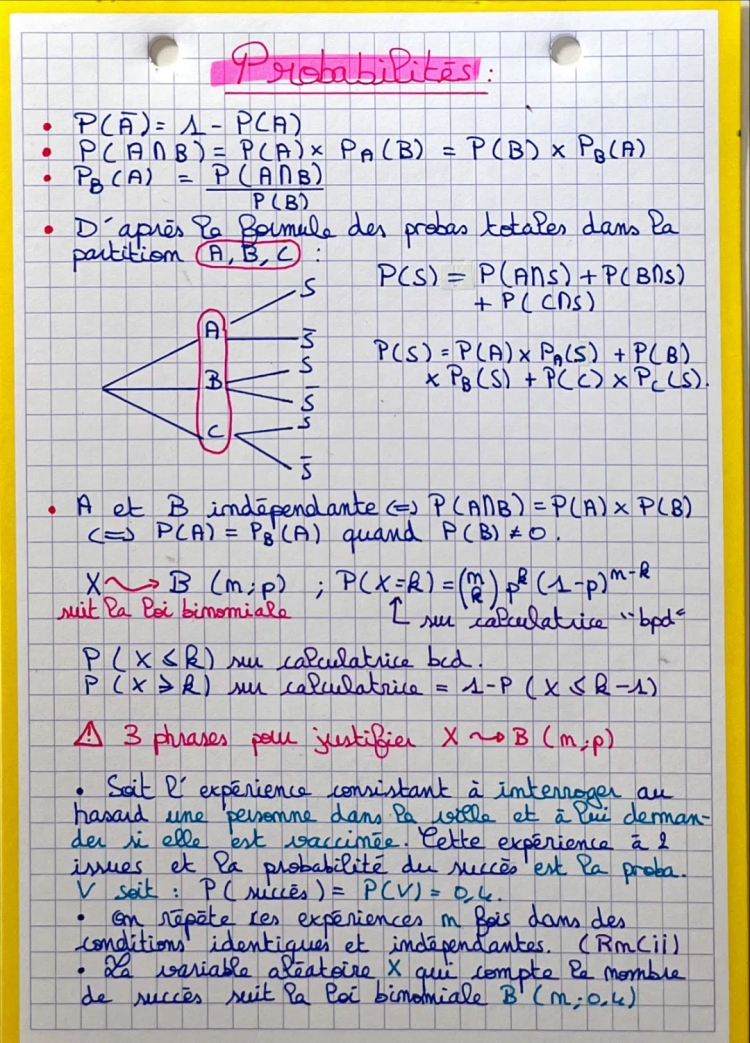 Probabilités :
• P(Ā) = 1 - P(A)
• P(A∩B) = P(A) × P_A(B) = P(B) × P_B(A)
• P_B(A) = P(A∩B) / P(B)
• D'après la formule des probas totales dans la
partition (A, B, C) :
P(S) = P(A∩S) + P(B∩S)
+ P(C∩S)
P(S) = P(A) × P_A(S) + P(B)
× P_B(S) + P(C) × P_C(S).
S
A
S̄
S
B
S̄
S
C
S̄
• A et B indépendante <=> P(A∩B) = P(A) × P(B)
<=> P(A) = P_B(A) quand P(B) ≠ 0.
X ⇝ B (n;p) ; P(X=k) = (n k) p^k (1-p)^n-k
suit la loi binomiale
sur calculatrice "bpd"
P (X ≤ k) sur calculatrice bcd.
P (X ≥ k) sur calculatrice = 1-P (X ≤ k-1)
⚠ 3 phrases pour justifier X ⇝ B (n;p)
• Soit l'expérience consistant à interroger au
hasard une personne dans la ville et à lui deman-
der si elle est vaccinée. Cette expérience à 2
issues et la probabilité du succès est la proba.
V soit : P(succès) = P(V) = 0,4.
• On répète ces expériences n fois dans des
conditions identiques et indépendantes. (RnCii)
• La variable aléatoire X qui compte le nombre
de succès suit la loi binomiale B (n;0,4)